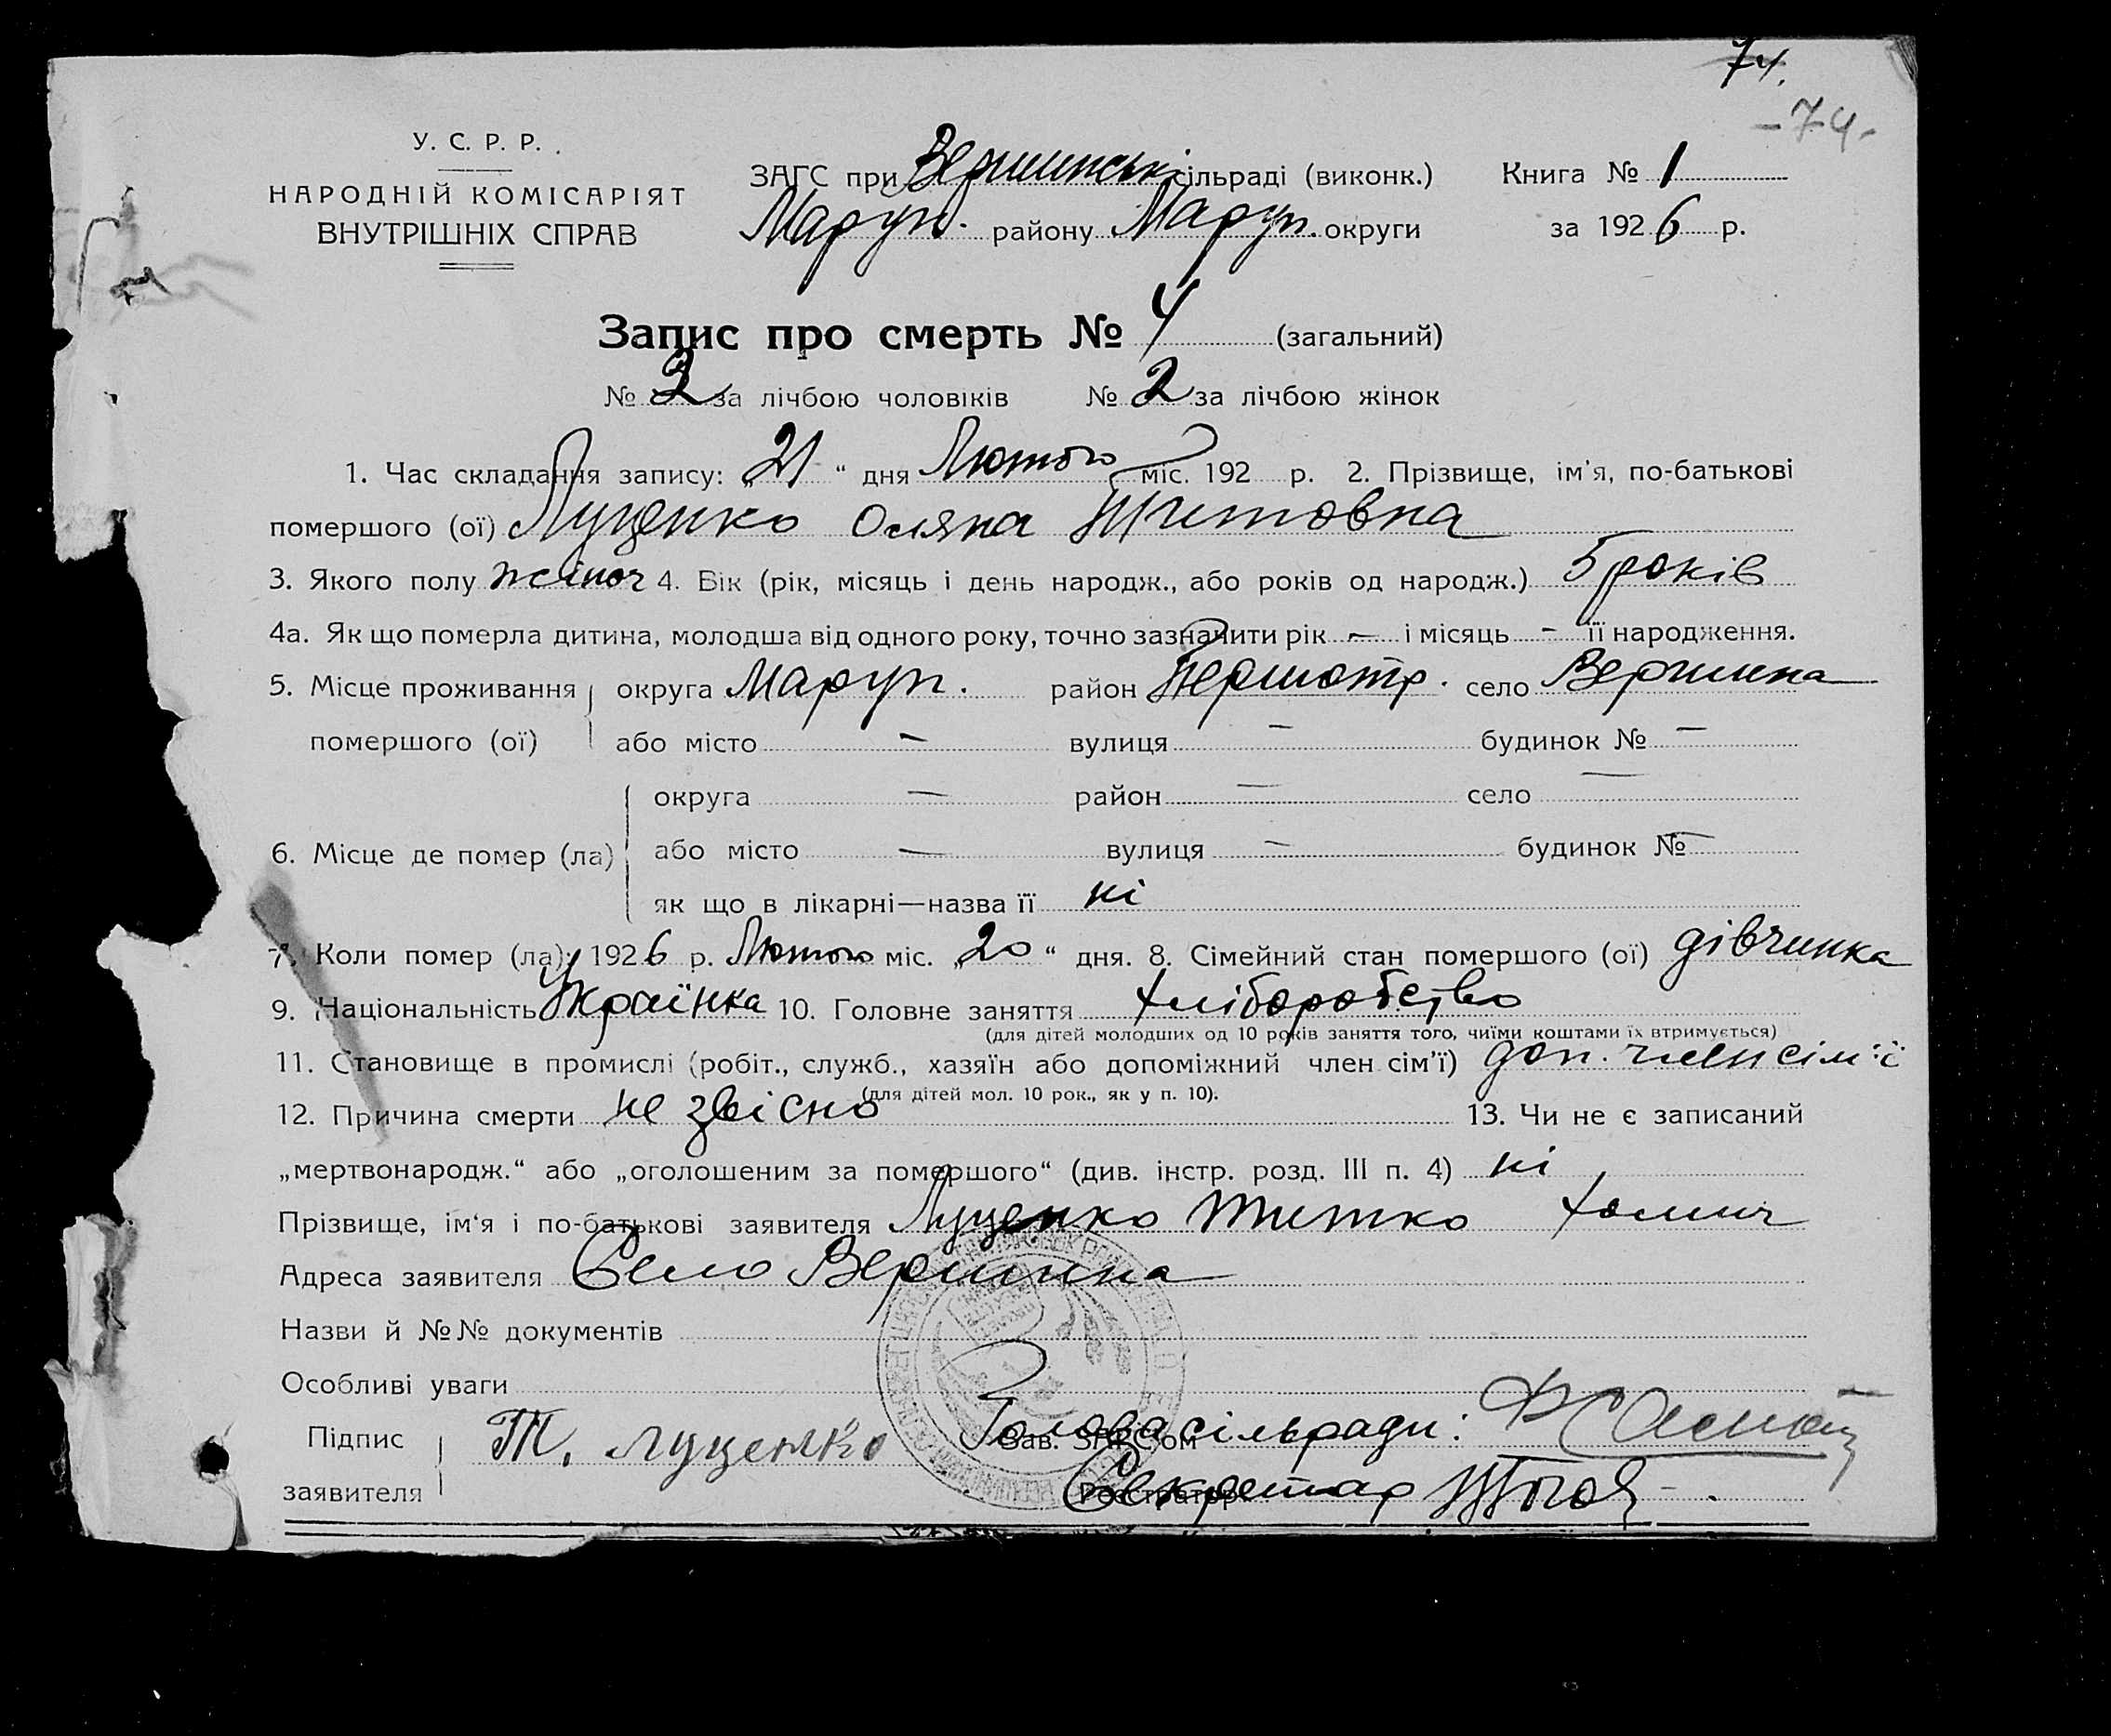 74.
-74-
У. С. Р. Р.
НАРОДНІЙ КОМІСАРІЯТ
ВНУТРІШНІХ СПРАВ
ЗАГС при Вершинські сільраді (виконк.) Книга № 1
Маруп. району Маруп. округи за 1926 р.
Запис про смерть № 4 (загальний)
№ 2 за лічбою чоловіків № 2 за лічбою жінок
1. Час складання запису: „21“ дня Лютого міс. 192 р. 2. Прізвище, ім'я, по-батькові
помершого (ої) Луценко Оляна Титовна
3. Якого полу жіноч 4. Вік (рік, місяць і день народж., або років од народж.) 5 років
4а. Як що померла дитина, молодша від одного року, точно зазначити рік — і місяць - її народження.
5. Місце проживання округа Маруп. район Першотр. село Вершина
помершого (ої) або місто - вулиця - будинок № -
округа — район — село —
6. Місце де помер (ла) або місто — вулиця — будинок № —
як що в лікарні—назва її ні
7. Коли помер (ла): 1926 р. Лютого міс. „20“ дня. 8. Сімейний стан помершого (ої) дівчинка
9. Національність Українка 10. Головне заняття хліборобство
(для дітей молодших од 10 років заняття того, чиїми коштами їх втримується)
11. Становище в промислі (робіт., служб., хазяїн або допоміжний член сім'ї) доп. член сім'ї
(для дітей мол. 10 рок., як у п. 10).
12. Причина смерти не звісно 13. Чи не є записаний
„мертвонародж.“ або „оголошеним за помершого“ (див. інстр. розд. III п. 4) ні
Прізвище, ім'я і по-батькові заявителя Луценко Титко Хомич
Адреса заявителя Село Вершина
Назви й №№ документів
Особливі уваги
Підпис заявителя Т. Луценко Зав. ЗАГС'ом Голова сільради:
Реєстратор Секретар